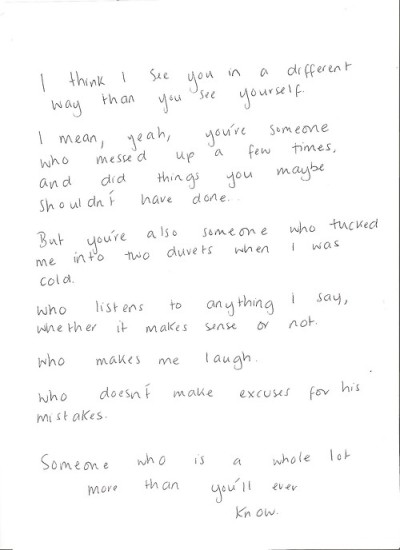 I think I see you in a different
way than you see yourself.
I mean, yeah, you're someone
who messed up a few times,
and did things you maybe
shouldn't have done..
But you're also someone who tucked
me into two duvets when I was
cold.
who listens to anything I say,
whether it makes sense or not.
who makes me laugh.
who doesn't make excuses for his
mistakes.
Someone who is a whole lot
more than you'll ever
know.